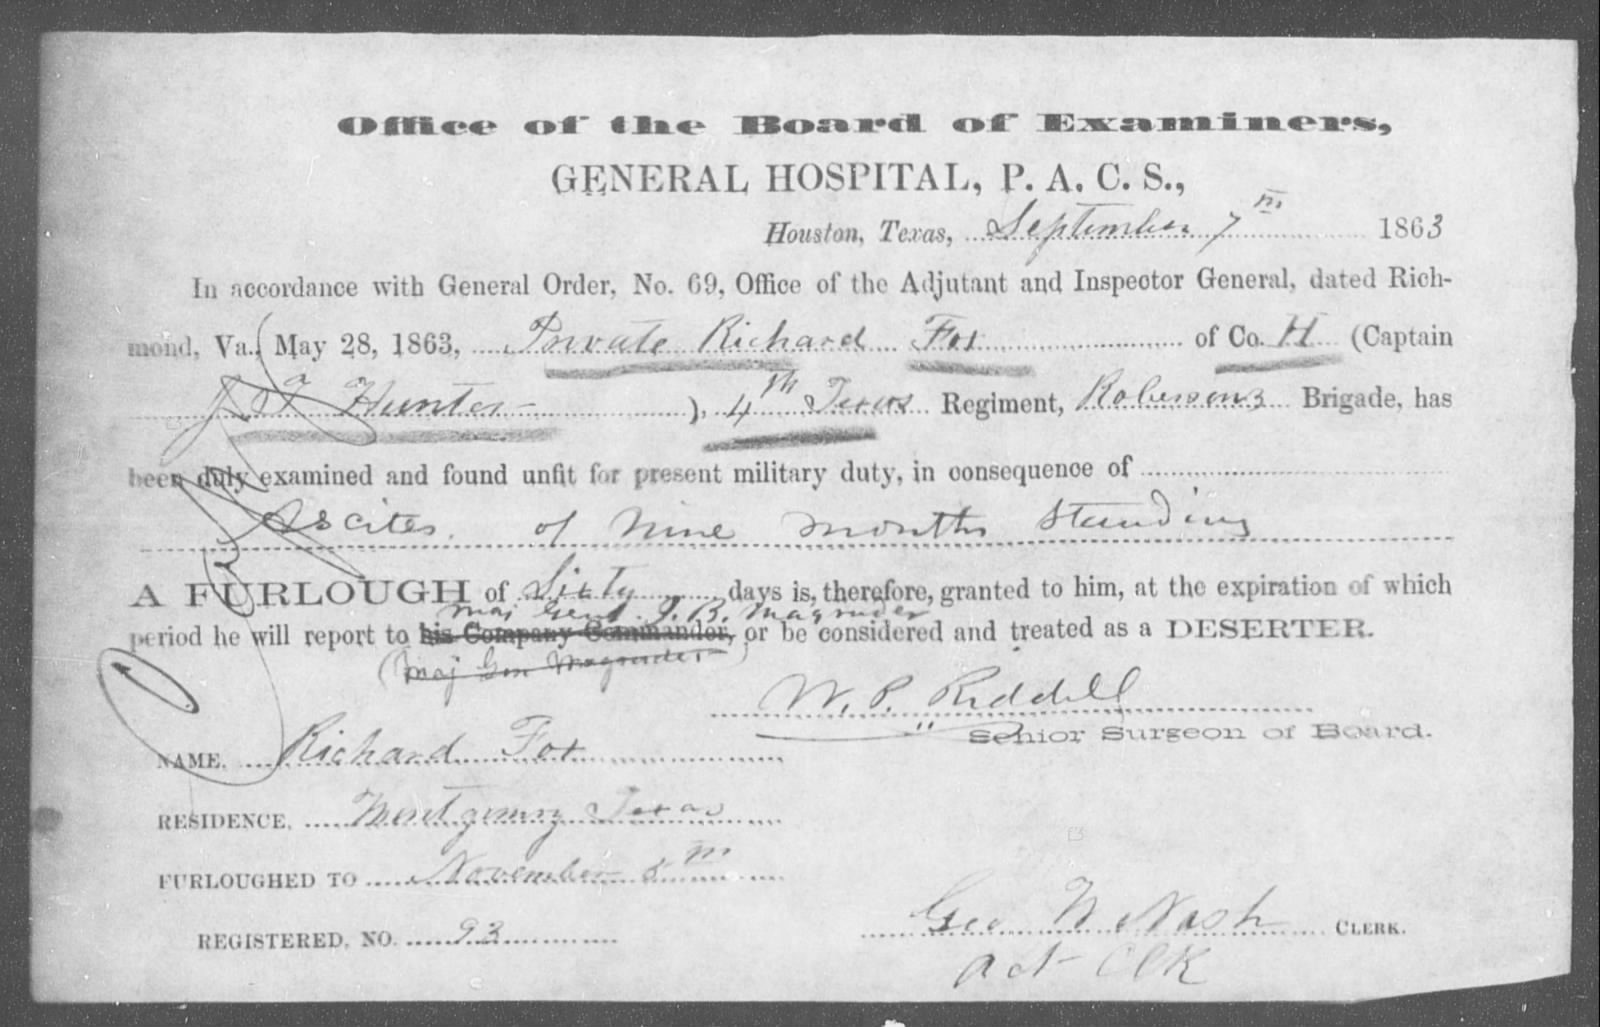 Office of the Board of Examiners,
GENERAL HOSPITAL, P. A. C. S.,
Houston, Texas, September 7th 1863
In accordance with General Order, No. 69, Office of the Adjutant and Inspector General, dated Rich-
mond, Va., May 28, 1863, Private Richard Fox of Co. H (Captain
J T Hunter ), 4th Texas Regiment, Robersons Brigade, has
been duly examined and found unfit for present military duty, in consequence of
Ascites of nine months standing
A FURLOUGH of Sixty days is, therefore, granted to him, at the expiration of which
Maj Genl J. B. Magruder
period he will report to his Company Commander, or be considered and treated as a DESERTER.
(Maj Gen Magruder)
W. P. Riddell
Senior Surgeon of Board.
NAME, Richard Fox
RESIDENCE, Montgomery Texas
FURLOUGHED TO November 5th
REGISTERED, NO. 93
Geo W Nash CLERK.
act Clk